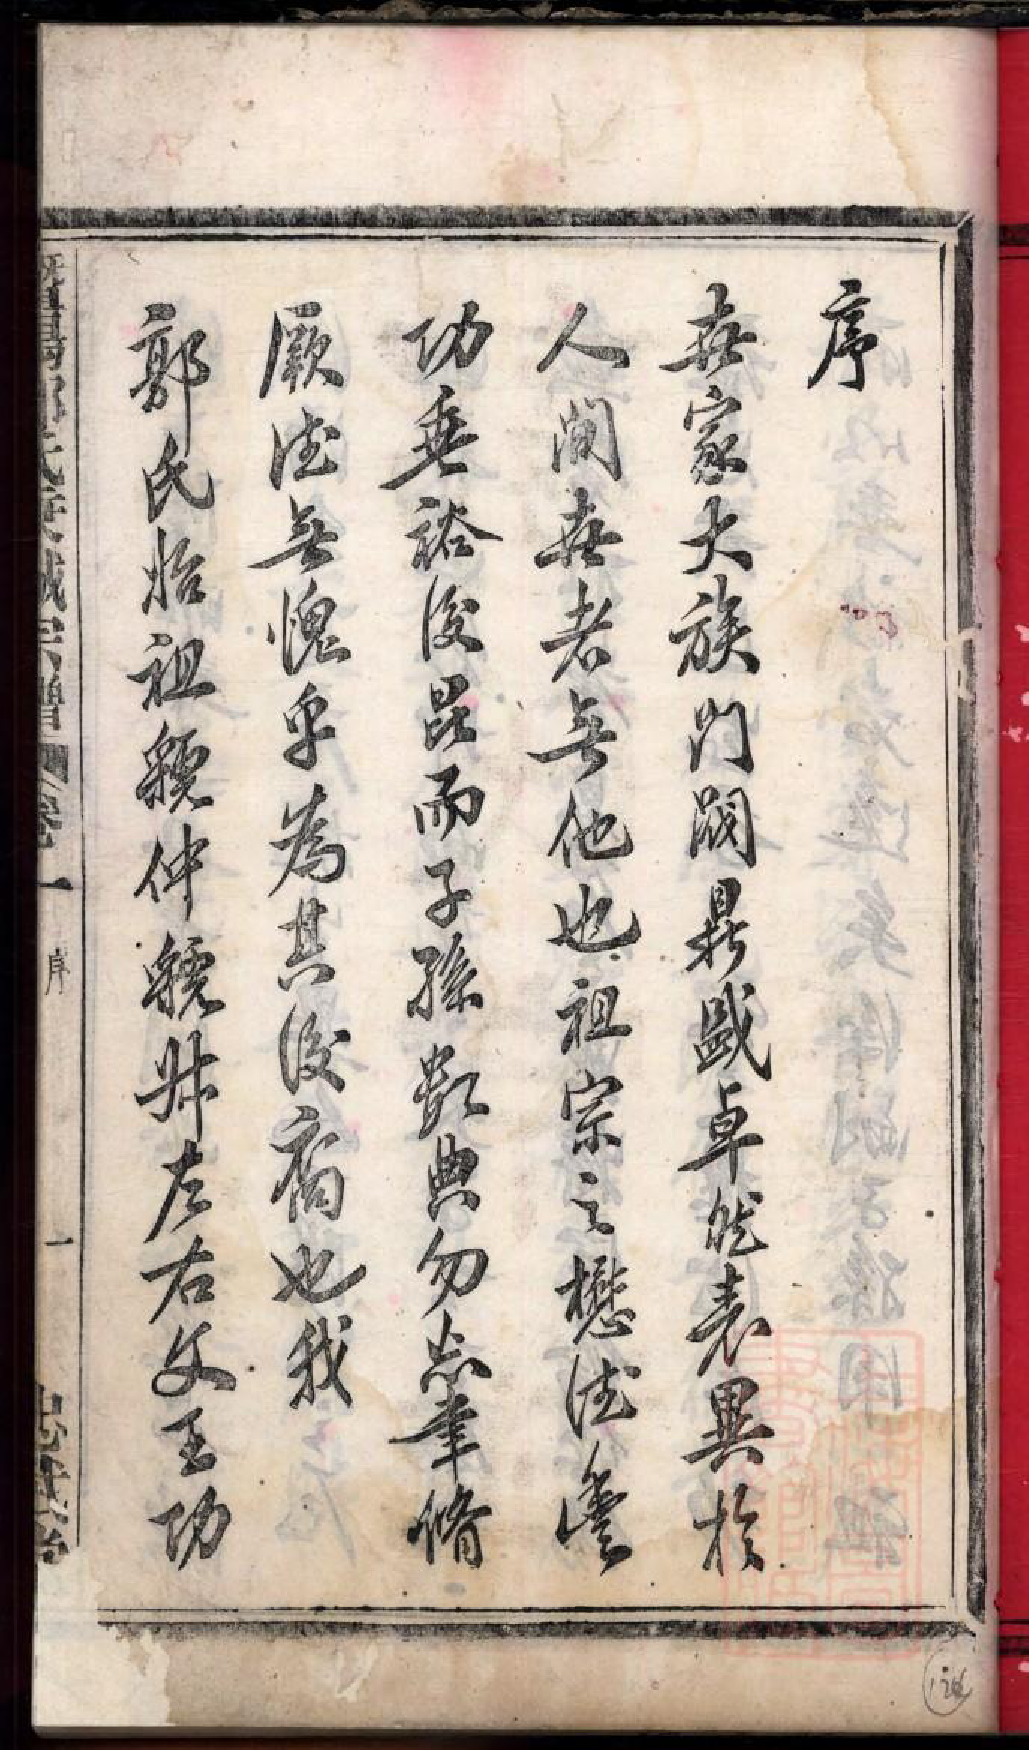 序
世家大族門閥鼎盛卓然表異於
人間世者無他也祖宗之懋德豐
功垂裕後昆而子孫數典勿忘聿脩
厥德無愧乎為其後裔也我
郭氏始祖虢仲虢叔左右文王功
郭氏 宗譜 卷一 序 一